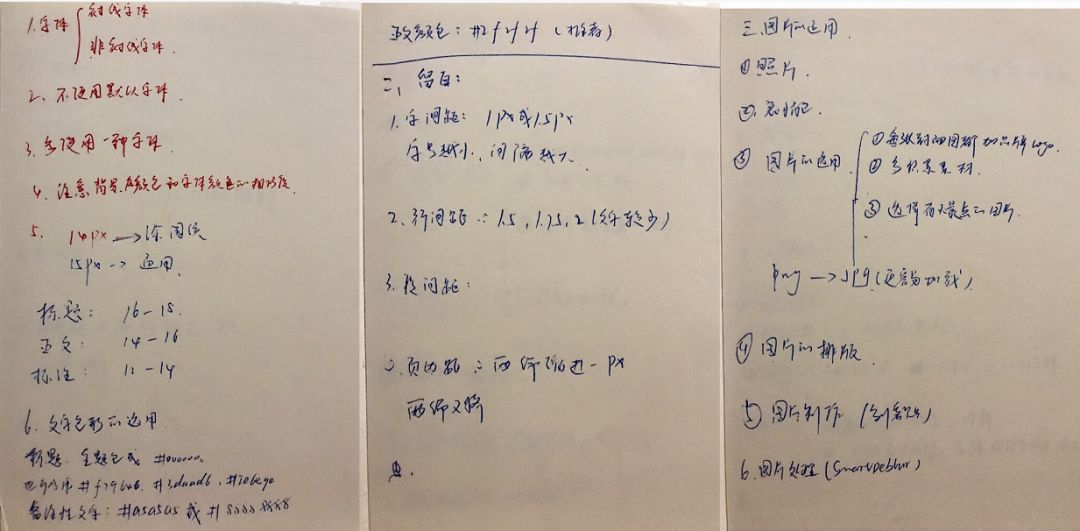 1. 字体 { 衬线字体
非衬线字体.
2. 不使用默认字体.
3. 多使用一种字体
4. 注意背景颜色和字体颜色的相似度.
5. 14px →
15px → 通用.
标题: 16-18.
正文: 14-16
标注: 12-14
6. 文字色彩的运用
标题. 主题色或 #000000.
备注性文字: #a5a5a5 或 #888888
正文颜色: #2f2f2f (推荐)
二、留白:
1. 字间距: 1px或1.5px
字号越小, 间隔越大
2. 行间距: 1.5, 1.75, 2 (文字较少)
3. 段间距:
页边距: 两端缩进一px
两端对齐
三. 图片的运用.
① 照片.
②
③ 图片的运用
① 图都加品牌logo.
② 多积累素材.
③ 选择有亮点的图片.
png → jpg (更容易加载)
④ 图片的排版.
⑤ 图片制作 (创客贴)
6. 图片处理 (Smartdeblur)